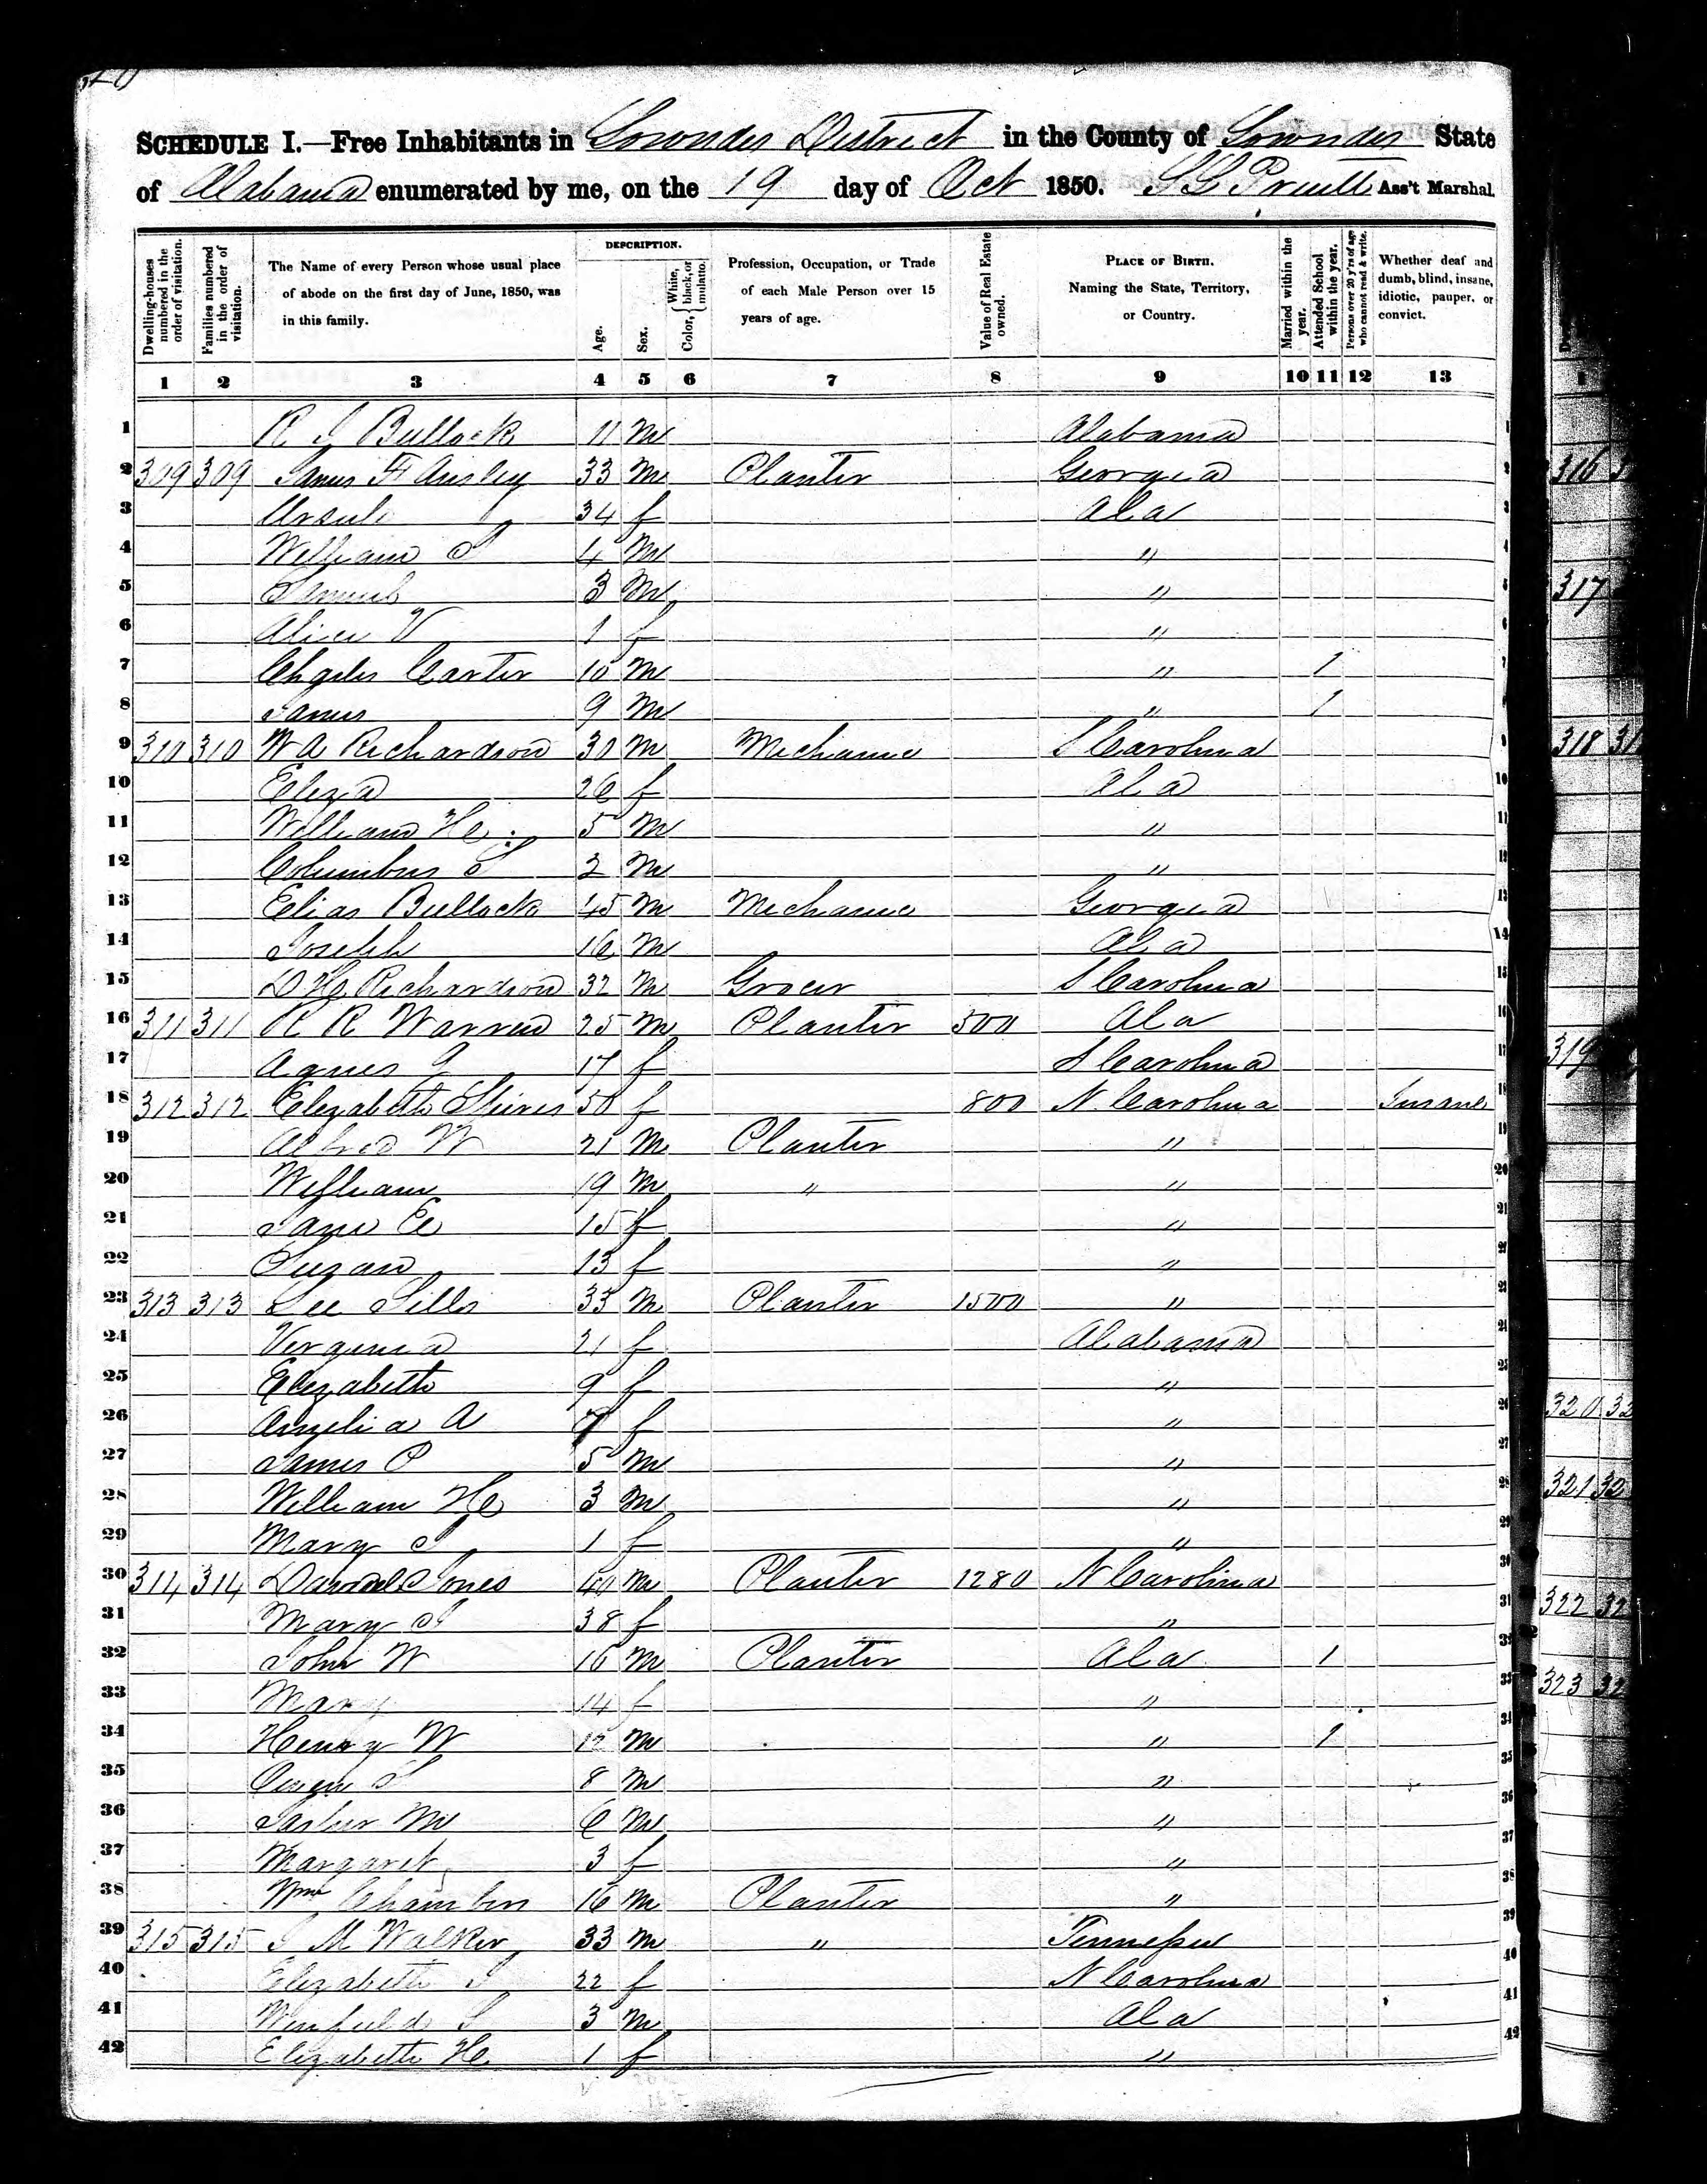 SCHEDULE I.—Free Inhabitants in Lowndes District in the County of Lowndes State
of Alabama enumerated by me, on the 19 day of Oct 1850. S L Pruitt Ass't Marshal.
Dwelling-houses numbered in the order of visitation.
Families numbered in the order of visitation.
The Name of every Person whose usual place of abode on the first day of June, 1850, was in this family.
DESCRIPTION.
Age.
Sex.
Color, White, black, or mulatto.
Profession, Occupation, or Trade of each Male Person over 15 years of age.
Value of Real Estate owned.
PLACE OF BIRTH. Naming the State, Territory, or Country.
Married within the year.
Attended School within the year.
Persons over 20 y'rs of age who cannot read & write.
Whether deaf and dumb, blind, insane, idiotic, pauper, or convict.
1 2 3 4 5 6 7 8 9 10 11 12 13
1 R Bullock 11 M Alabama 1
2 309 309 James 33 M Planter Georgia 2
3 34 f Ala 3
4 William 4 M " 4
5 Samuel 3 M " 5
6 Alice V 1 f " 6
7 Carter 10 M " 1 7
8 James 9 M " 1 8
9 310 310 W A Richardson 30 M Mechanic S Carolina 9
10 Eliza 26 f Ala 10
11 William H 5 M " 11
12 Columbus S 2 M " 12
13 Elias Bullock 45 M Mechanic Georgia 13
14 Joseph 16 M Ala 14
15 D H Richardson 32 M Grocer S Carolina 15
16 311 311 R R Warren 25 M Planter 500 Ala 16
17 Agnes 17 f S Carolina 17
18 312 312 Elizabeth 50 f 800 N. Carolina Insane 18
19 Alfred W 21 M Planter " 19
20 William 19 M " " 20
21 Jane E 15 f " 21
22 Suzan 13 f " 22
23 313 313 Lee Sills 33 M Planter 1500 " 23
24 Virginia 21 f Alabama 24
25 Elizabeth 9 f " 25
26 Angelia A 7 f " 26
27 James P 5 M " 27
28 William H 3 M " 28
29 Mary 1 f " 29
30 314 314 Jones 40 M Planter 1280 N Carolina 30
31 Mary 38 f " 31
32 John W 16 M Planter Ala 1 32
33 Mary 14 f " 33
34 Henry W 12 M " 1 34
35 8 M " 35
36 6 M " 36
37 Margaret 3 f " 37
38 Wm 16 M Planter " 38
39 315 315 M Walker 33 M " Tennessee 39
40 Elizabeth 22 f N Carolina 40
41 Winfield S 3 M Ala 41
42 Elizabeth H 1 f " 42
316
317
318 31
319
320 32
321 32
322 32
323 32